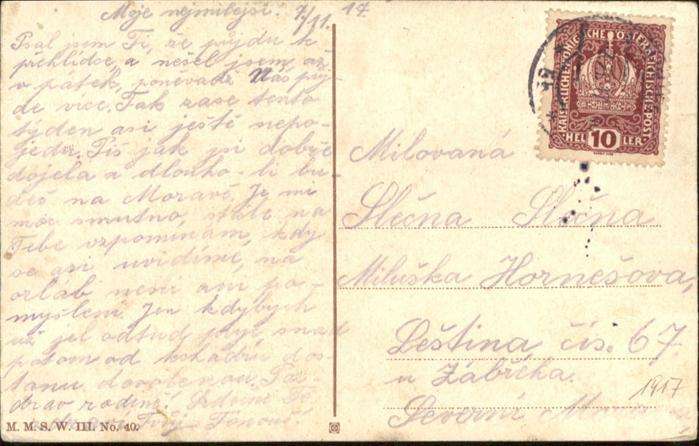 Moje nejmilejší. 7/11. 17
Psal jsem Ti, že půjdu k
přehlídce, a nešel jsem až
v pátek, poněvadž nás při-
de více. Tak zase tento
týden asi ještě nepo-
jedu. Piš jak jsi dobře
dojela a dlouho-li bu-
deš na Moravě. Je mi
moc smutno, stále na
Tebe vzpomínám, kdy
se asi uvidíme, na
není ani po-
myšlení. Jen kdybych
už jel odtud pryč, snad
potom od kádru dos-
tanu dovolenou. Poz-
drav rodině. Srdečně Tě
Tvůj
M. M. S. W. III. No. 40.
KAISERLICHE KÖNIGLICHE ÖSTERREICHISCHE POST
HELLER 10
Milovaná
Slečna Slečna
Miluška Hornešova,
Leština čís. 67
u Zábřeha.
Severní
1917